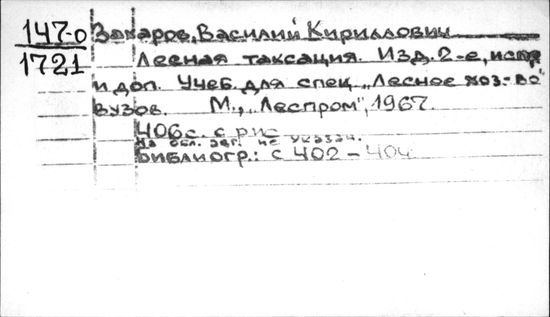 147-0 Захаров, Василий Кириллович
1721 Лесная таксация. Изд. 2-е, испр
и доп. Учеб. для спец „Лесное хоз-во"
вузов. М., „Леспром", 1967.
406с. с рис
На обл. авт. не указан.
Библиогр.: с 402-404